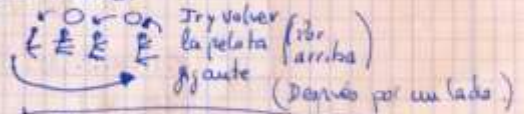 Ir y volver
la pelota (por
arriba)
gigante
(Después por un lado.)